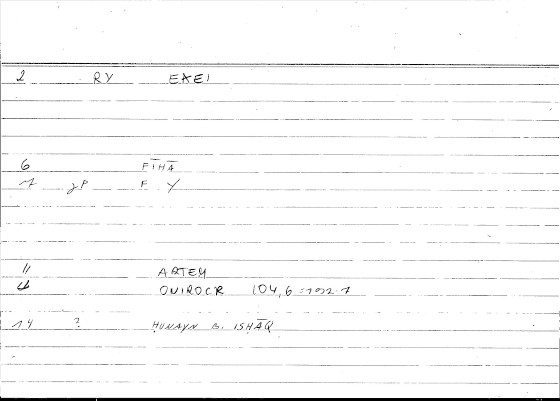 2 RY EXEI
6 FĪHĀ
7 γP F Y
11 ARTEM
4 ONIROCR 104,6 = 192.7
14 ? HUNAYN B. ISHĀQ